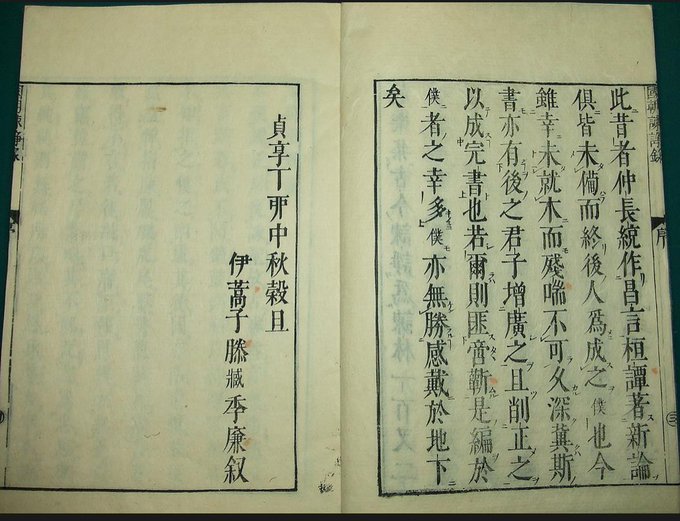 國朝諫諍錄
序
三
此昔者仲長統作昌言桓譚著新論
俱皆未俻而終後人爲成之僕也今
雖幸未就木而殘喘不可久深冀斯
書亦有後之君子增廣之且削正之
以成完書也若爾則匪啻蘄是編於
僕者之幸多僕亦無勝感戴於地下
矣
貞享丁丣中秋穀旦
伊蒿子滕臧季廉叙